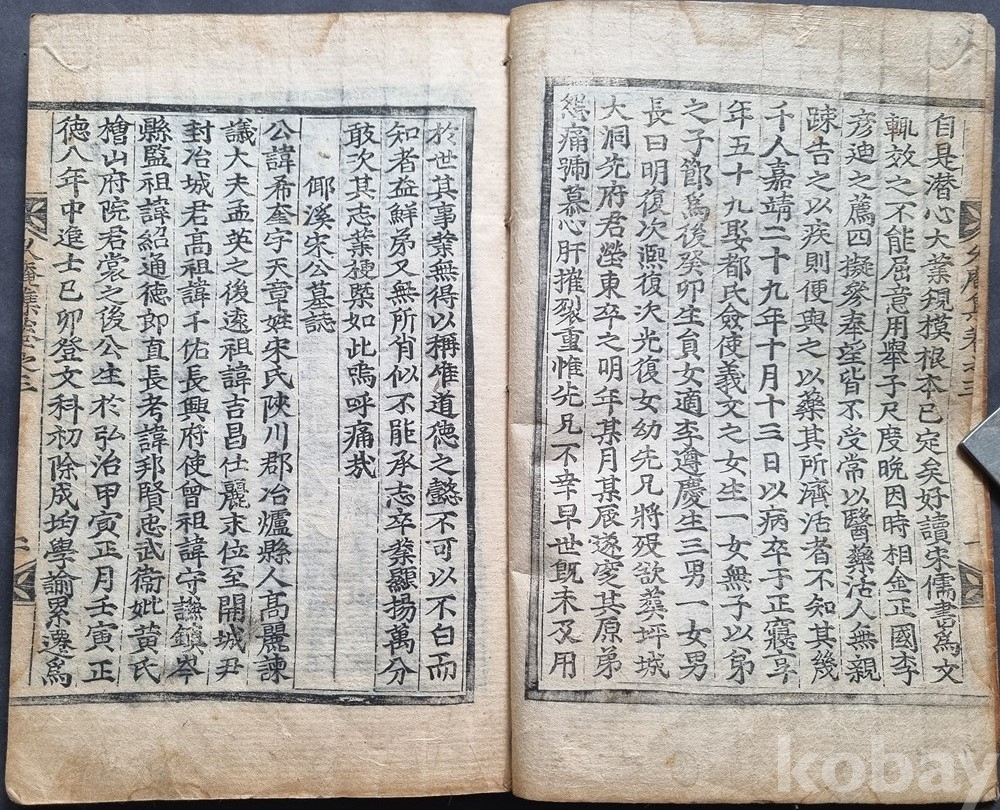 自是潛心大業規模根本已定矣好讀宋儒書爲文
輒效之不能屈意用擧子尺度晩因時相金正國李
彦迪之薦四擬參奉望皆不受常以醫藥活人無親
踈告之以疾則便與之以藥其所濟活者不知其幾
千人嘉靖二十九年十月十三日以病卒于正寢享
年五十九娶都氏僉使義文之女生一女無子以弟
之子節爲後癸卯生員女適李遵慶生三男一女男
長曰明復次凞復次光復女幼先兄將歿欲葬坪城
大洞先府君塋東卒之明年某月某辰遂窆其原弟
怨痛號慕心肝摧裂重惟先兄不幸早世旣未及用
於世其事業無得以稱惟道德之懿不可以不白而
知者益鮮弟又無所肖似不能承志卒業顯揚萬分
敢次其志業梗槩如此嗚呼痛哉
倻溪宋公墓誌
公諱希奎字天章姓宋氏陜川郡冶爐縣人高麗諫
議大夫孟英之後遠祖諱吉昌仕麗末位至開城尹
封冶城君高祖諱千佑長興府使曾祖諱守謙鎭岑
縣監祖諱紹通德郞直長考諱邦賢忠武衞妣黃氏
檜山府院君裳之後公生於弘治甲寅正月壬寅正
德八年中進士己卯登文科初除成均學諭累遷爲
kobay